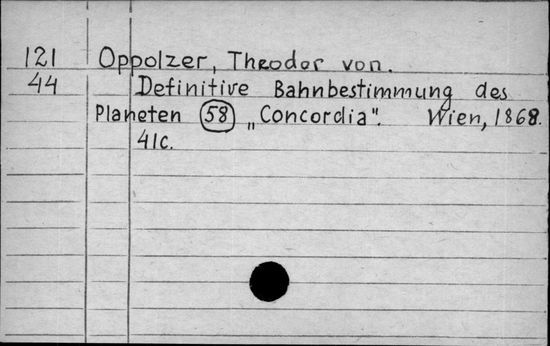 121 Oppolzer, Theodor von.
44 Definitive Bahnbestimmung des
Planeten 58 „Concordia". Wien, 1868.
41c.